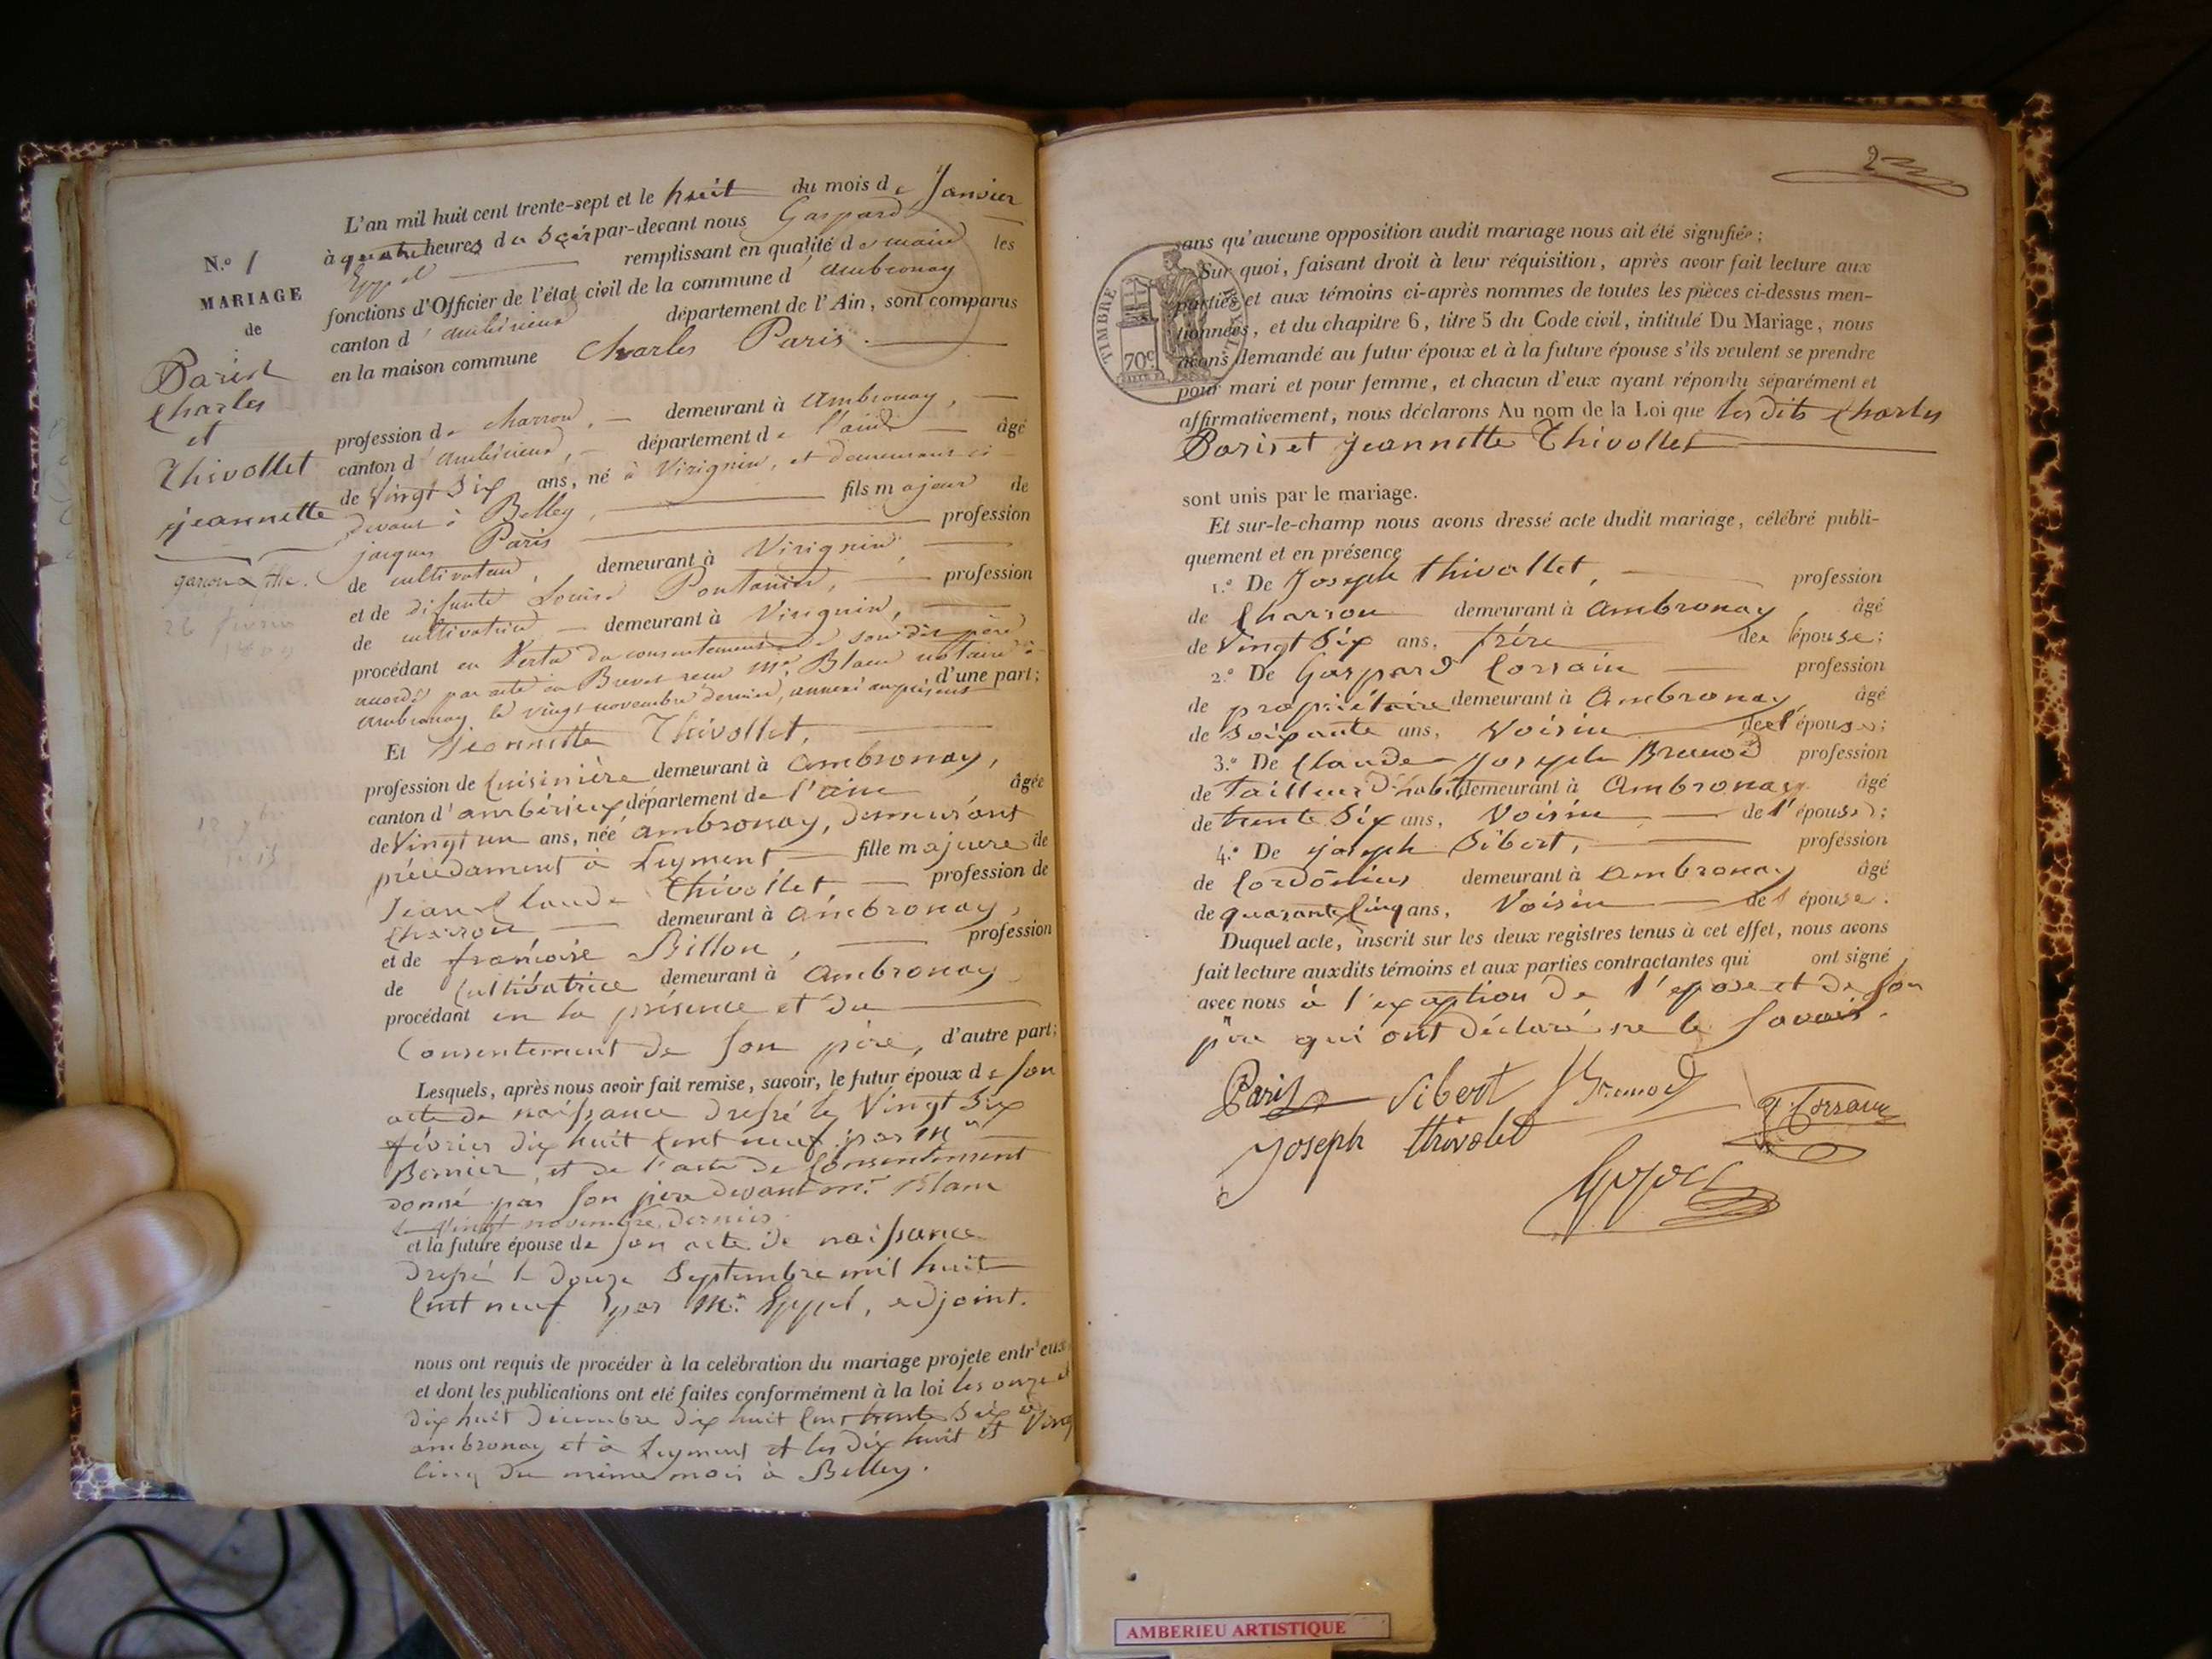 N.º 1
MARIAGE
de
Paris
Charles
et
Thivollet
jeannette
garçon & fille.
L'an mil huit cent trente-sept et le huit du mois de Janvier
à quatre heures du Soir par-devant nous Gaspard
Eyppel remplissant en qualité de maire les
fonctions d'Officier de l'état civil de la commune d'ambronay
canton d'ambérieux département de l'Ain, sont comparus
en la maison commune Charles Paris.
profession de charron, demeurant à Ambronay,
canton d'ambérieux, département de l'ain âgé
de Vingt Six ans, né à Virignin, et demeurant ci-
devant à Belley, fils majeur de
jacques Paris profession
de cultivateur, demeurant à Virignin,
et de défunte Louise Pontanier, profession
de cultivatrice demeurant à Virignin,
procédant en Vertu du consentement de son dit père
accordé par acte en Brevet reçu Mr. Blanc notaire à
Ambronay le vingt novembre dernier, annexé au présent d'une part;
Et Jeannette Thivollet,
profession de Cuisinière demeurant à Ambronay,
canton d'ambérieux département de l'ain âgée
de Vingt un ans, née ambronay, demeurant
précédament à Leyment fille majeure de
Jean Claude Thivollet profession de
Charron demeurant à Ambronay,
et de françoise Billon, profession
de Cultivatrice demeurant à Ambronay
procédant en la présence et du
Consentement de son père, d'autre part;
Lesquels, après nous avoir fait remise, savoir, le futur époux de son
acte de naissance dressé le Vingt Six
février dix huit Cent neuf par Mr
Bernier, et de l'acte de Consentement
donné par son père devant mr. Blanc
le Vingt novembre dernier.
et la future épouse de son acte de naissance
dressé le douze Septembre mil huit
Cent neuf par Mr. Eyppel, adjoint.
nous ont requis de procéder à la celébration du mariage projete entr'eux
et dont les publications ont eté faites conformément à la loi les onze et
dix huit décembre dix huit Cent trente Six à
ambronay et à Leyment et les dix huit et Vingt
Cinq du même mois à Belley.
2
TIMBRE ROYAL
70c
sans qu'aucune opposition audit mariage nous ait été signifiée;
Sur quoi, faisant droit à leur réquisition, après avoir fait lecture aux
parties et aux témoins ci-après nommes de toutes les pièces ci-dessus men-
tionnées, et du chapitre 6, titre 5 du Code civil, intitulé Du Mariage, nous
avons demandé au futur époux et à la future épouse s'ils veulent se prendre
pour mari et pour femme, et chacun d'eux ayant répondu séparément et
affirmativement, nous déclarons Au nom de la Loi que les dits Charles
Paris et Jeannette Thivollet
sont unis par le mariage.
Et sur-le-champ nous avons dressé acte dudit mariage, célébré publi-
quement et en présence
1.º De Joseph thivollet, profession
de Charron demeurant à Ambronay, âgé
de Vingt Six ans, frère de l'épouse;
2.º De Gaspard Corrain profession
de propriétaire demeurant à Ambronay âgé
de Soixante ans, Voisin de l'épouse;
3.º De Claude Joseph Brunod profession
de Tailleur d'habit demeurant à Ambronay âgé
de trente Six ans, Voisin de l'épouse;
4.º De joseph Sibert, profession
de Cordonier demeurant à Ambronay âgé
de quarante Cinq ans, Voisin de l'épouse.
Duquel acte, inscrit sur les deux registres tenus à cet effet, nous avons
fait lecture auxdits témoins et aux parties contractantes qui ont signé
avec nous à l'exception de l'épouse et de son
père qui ont déclaré ne le savoir.
Paris Sibert Brunod
Joseph thivolet
AMBERIEU ARTISTIQUE